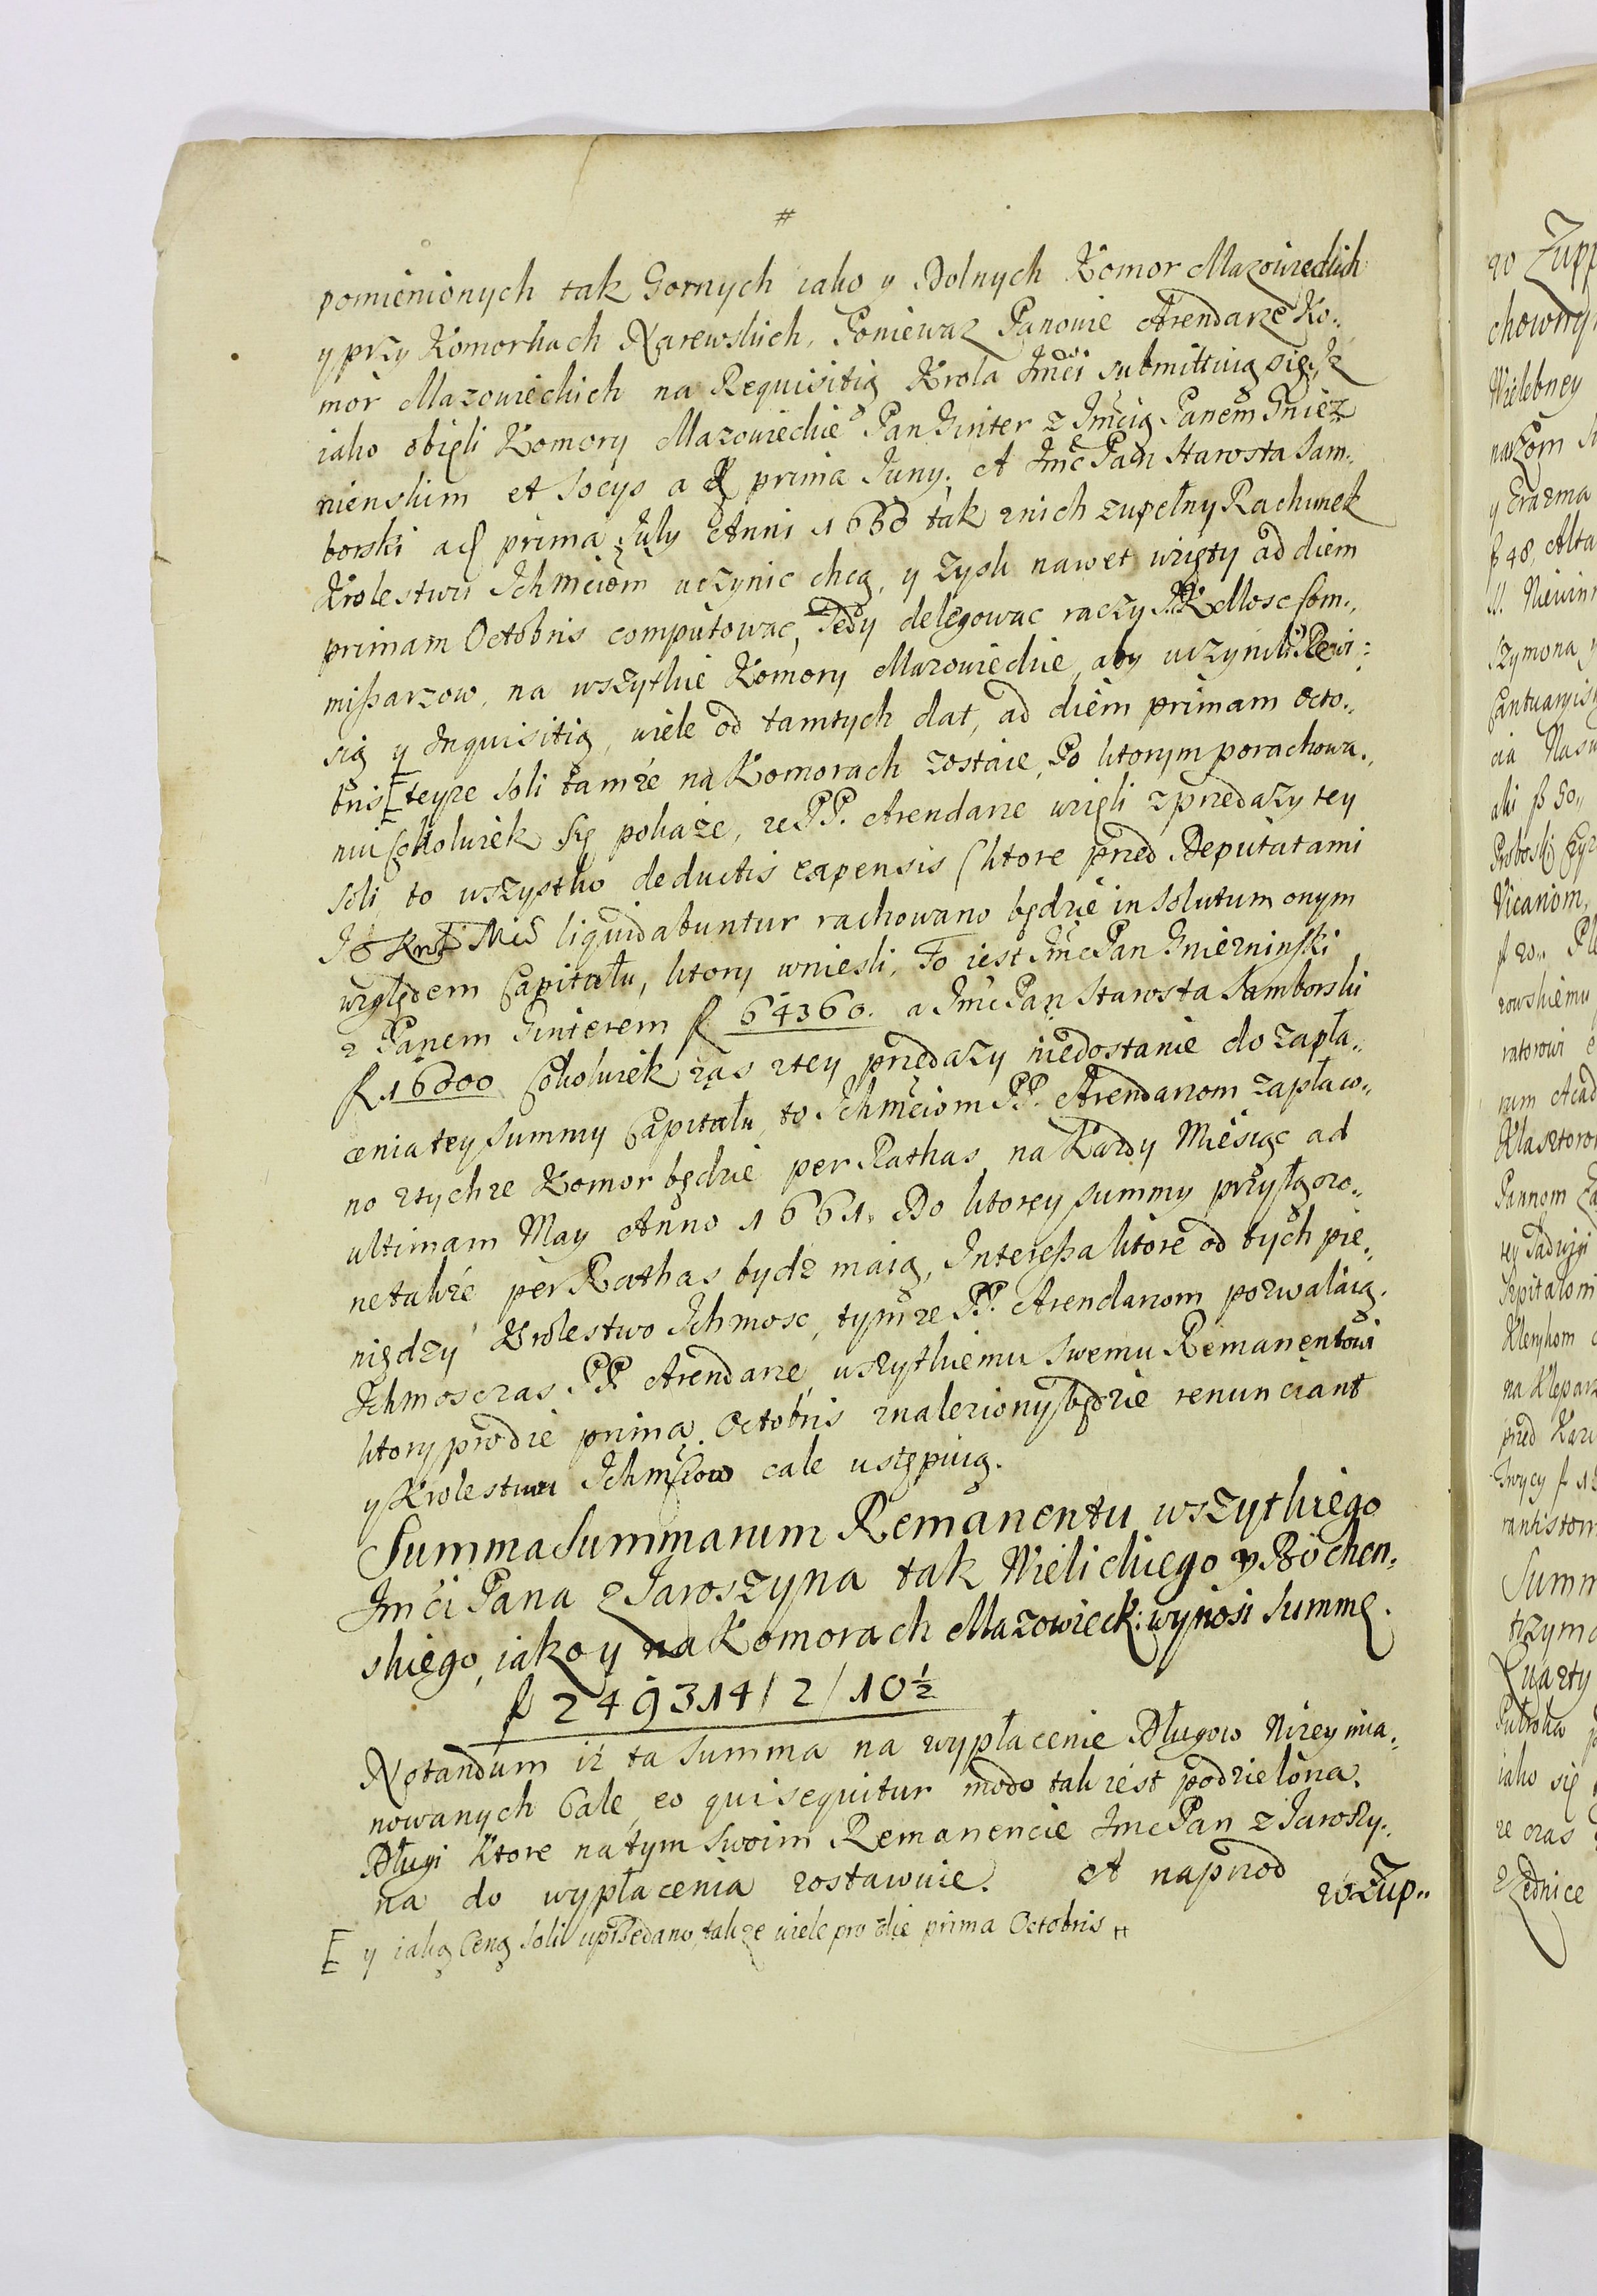 #
pomienionych tak Gornych iako y Dolnych Komor Mazowieckich
y przy Komorkach Narewskich, Poniewaz Panowie Arendarze Ko„
mor Mazowieckich na Requisitią Krola Jmći submittuią się, Iz
iako obięli Komory Mazowieckie Pan Ginter z Jmćią Panem Gniez
nienskim et Socys a prima Juny. A Jmć Pan Starosta Sam„
borski a prima July Anni 1660 tak znich zupełny Rachunek
Krolestwu Ichmciom uczynic chcą, y zysk nawet wzięty ad diem
primam Octobris computowac, Tedy delegowac raczy JKMosc Com„
mißarzow, na wszytkie Komory Mazowieckie, aby uczynili Rewi:
sią y Inquisitią, wiele od tamtych dat, ad diem primam Octo„
bris [ teyze soli tamże na Komorach zostaie, Po ktorym porachowa„
niu cokolwiek się pokaże, ze PP. Arendarze wzięli z przedazy tey
soli, to wszystko deductis expensis (ktore przed Deputatami
Jo Krol Mci liquidabuntur rachowano będzie in solutum onym
względem Capitału, ktory wniesli, To iest Jmć Pan Gniezninski
z Panem Ginterem f 64360. a Jmć Pan Starosta Samborski
f 16000 Cokolwiek zas ztey przedazy niedostanie do zapła„
cenia tey summy Capitału, to Ichmćiom PP. Arendarzom zapław„
no ztychze Komor będzie per Rathas na Kazdy Miesiąc ad
ultimam May Anno 1661. Do ktorey summy przyłązo„
ne takżé per Rathas bydz maią, Intereßa ktore od tych pie„
niędzy Krolestwo Ichmosc, tymze PP. Arendarzom pozwalaią.
Ichmosc zas PP. Arendarze, wszytkiemu swemu Remanentowi
ktory pro die prima Octobris znaleziony będzie renunciant
y Krolestwu Ichmćiow cale ustępuią.
Summa Summarum Remanentu wszytkiego
Jmći Pana z Jaroszyna tak Wielickiego y Bochen„
skiego, iako y na Komorach Mazowieck: wynosi Summę.
f 249314/2/10½
Notandum iż ta Summa na wypłacenie Długow Nizey mia„
nowanych Cale, eo qui sequitur modo tak iest podzielona.
Długi Ktore na tym Swoim Remanencie Jmć Pan z Jaroszy„
na do wypłacenia zostawuie. A naprzod
zo Zup„
[ y iaką Ceną soli uprzedano, takze wiele pro die prima Octobris #
zo Zupp
chowny
Wielebney
narzom
y Erazma
f 48, Alta
Szymona y
cia
aki f 50„
Vicariom,
f 20„
rowskiemu
ratorowi
rum Acad
Klasztoro
Pannom
Szpitalom
Klerykom
na Klepar
przed
Summ
trzyma
Quarty
iako się
ze oraz